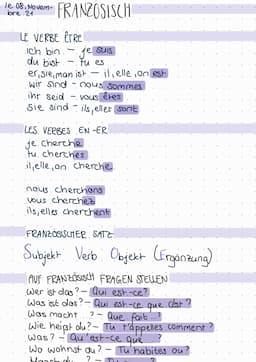 le 08. Novem-
bre. 21
FRANZÖSISCH
LE VERBE ÊTRE
ich bin - je suis
du bist - tu es
er,sie,man ist - il,elle,on est
wir sind - nous sommes
ihr seid - vous êtes
sie sind - ils,elles sont
LES VERBES EN -ER
je cherche
tu cherches
il,elle,on cherche
nous cherchons
vous cherchez
ils,elles cherchent
FRANZÖSISCHER SATZ
Subjekt Verb Objekt (Ergänzung)
AUF FRANZÖSISCH FRAGEN STELLEN
Wer ist das? - Qui est-ce?
Was ist das? - Qui est-ce que c'est?
Was macht ...? - Que fait ...?
Wie heißt du? - Tu t'appelles comment?
Was? - Qu'est-ce que ?
Wo wohnst du? - Tu habites ou?